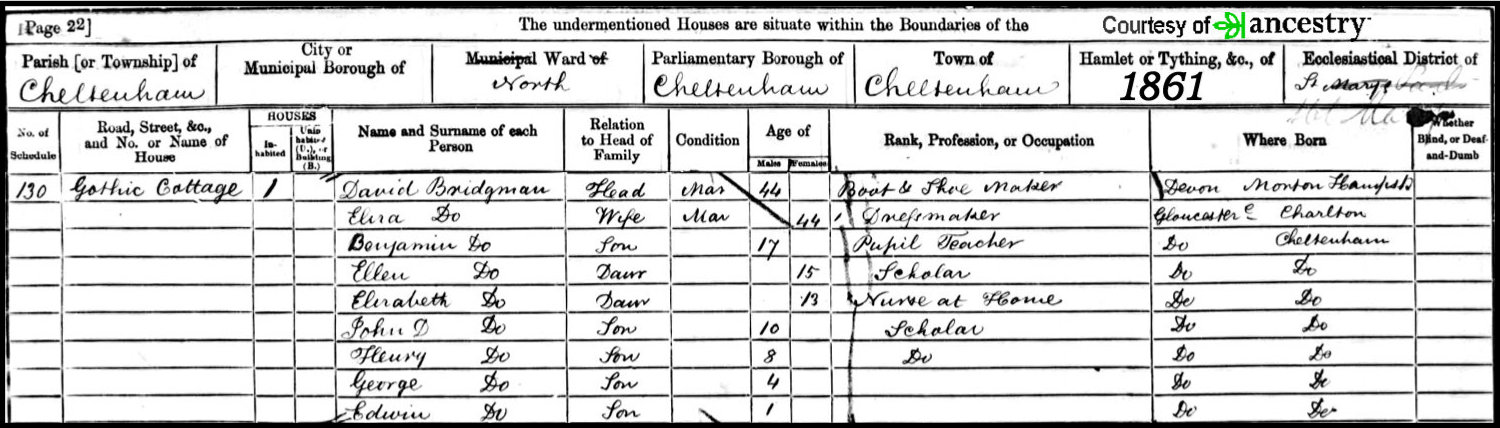 Page 22] The undermentioned Houses are situate within the Boundaries of the Courtesy of ancestry
Parish [or Township] of City or Municipal Borough of Municipal Ward of Parliamentary Borough of Town of Hamlet or Tything, &c., of Ecclesiastical District of
Cheltenham North Cheltenham Cheltenham 1861 St Mary's
No. of Schedule Road, Street, &c., and No. or Name of House HOUSES Inhabited Uninhabited (U.), or Building (B.) Name and Surname of each Person Relation to Head of Family Condition Age of Males Females Rank, Profession, or Occupation Where Born Whether Blind, or Deaf-and-Dumb
130 Gothic Cottage 1 David Bridgman Head Mar 44 Boot & Shoe Maker Devon Morton Hampstd
Eliza Do Wife Mar 44 Dressmaker Gloucester Charlton
Benjamin Do Son 17 Pupil Teacher Do Cheltenham
Ellen Do Daur 15 Scholar Do Do
Elizabeth Do Daur 13 Nurse at Home Do Do
John D Do Son 10 Scholar Do Do
Henry Do Son 8 Do Do Do
George Do Son 4 Do Do
Edwin Do Son 1 Do Do